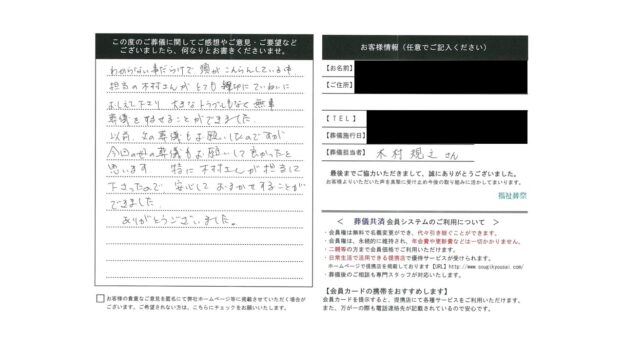 この度のご葬儀に関してご感想やご意見・ご要望など
ございましたら、何なりとお書きくださいませ。
わからない事だらけで、頭がこんらんしている中
担当の木村さんが とても親切にていねいに
おしえて下さり 大きなトラブルもなく無事
葬儀を終せることができました
以前、父の葬儀もお願いしたのですが
今回の母の葬儀もお願いして良かったと
思います 特に木村さんが担当して
下さったので 安心しておまかせすることが
できました。
ありがとうございました。
お客様の貴重なご意見を匿名にて弊社ホームページ等に掲載させていただく場合が
ございます。ご希望されない方は、こちらにチェックをお願いいたします。
お客様情報(任意でご記入ください)
【お名前】
【ご住所】
【TEL】
【葬儀施行日】
【葬儀担当者】 木村 規之 さん
最後までご協力いただきまして、誠にありがとうございました。
お客様よりいただいた声を真摯に受け止め今後の取り組みに活かしてまいります。
福祉葬祭
< 葬儀共済 会員システムのご利用について >
・会員権は無料で名義変更ができ、代々引き継ぐことができます。
・会員権は、永続的に維持され、年会費や更新費などは一切かかりません。
・二親等の方まで会員価格でご利用いただけます。
・日常生活で活用できる提携店で優待サービスが受けられます。
ホームページで提携店を掲載しております【URL】http://www.sougikyousai.com/
・葬儀後のご相談も専門スタッフが対応いたします。
【会員カードの携帯をおすすめします】
会員カードを提示すると、提携店にて各種サービスをご利用いただけます。
また、万が一の際も電話連絡先が記載されているので安心です。